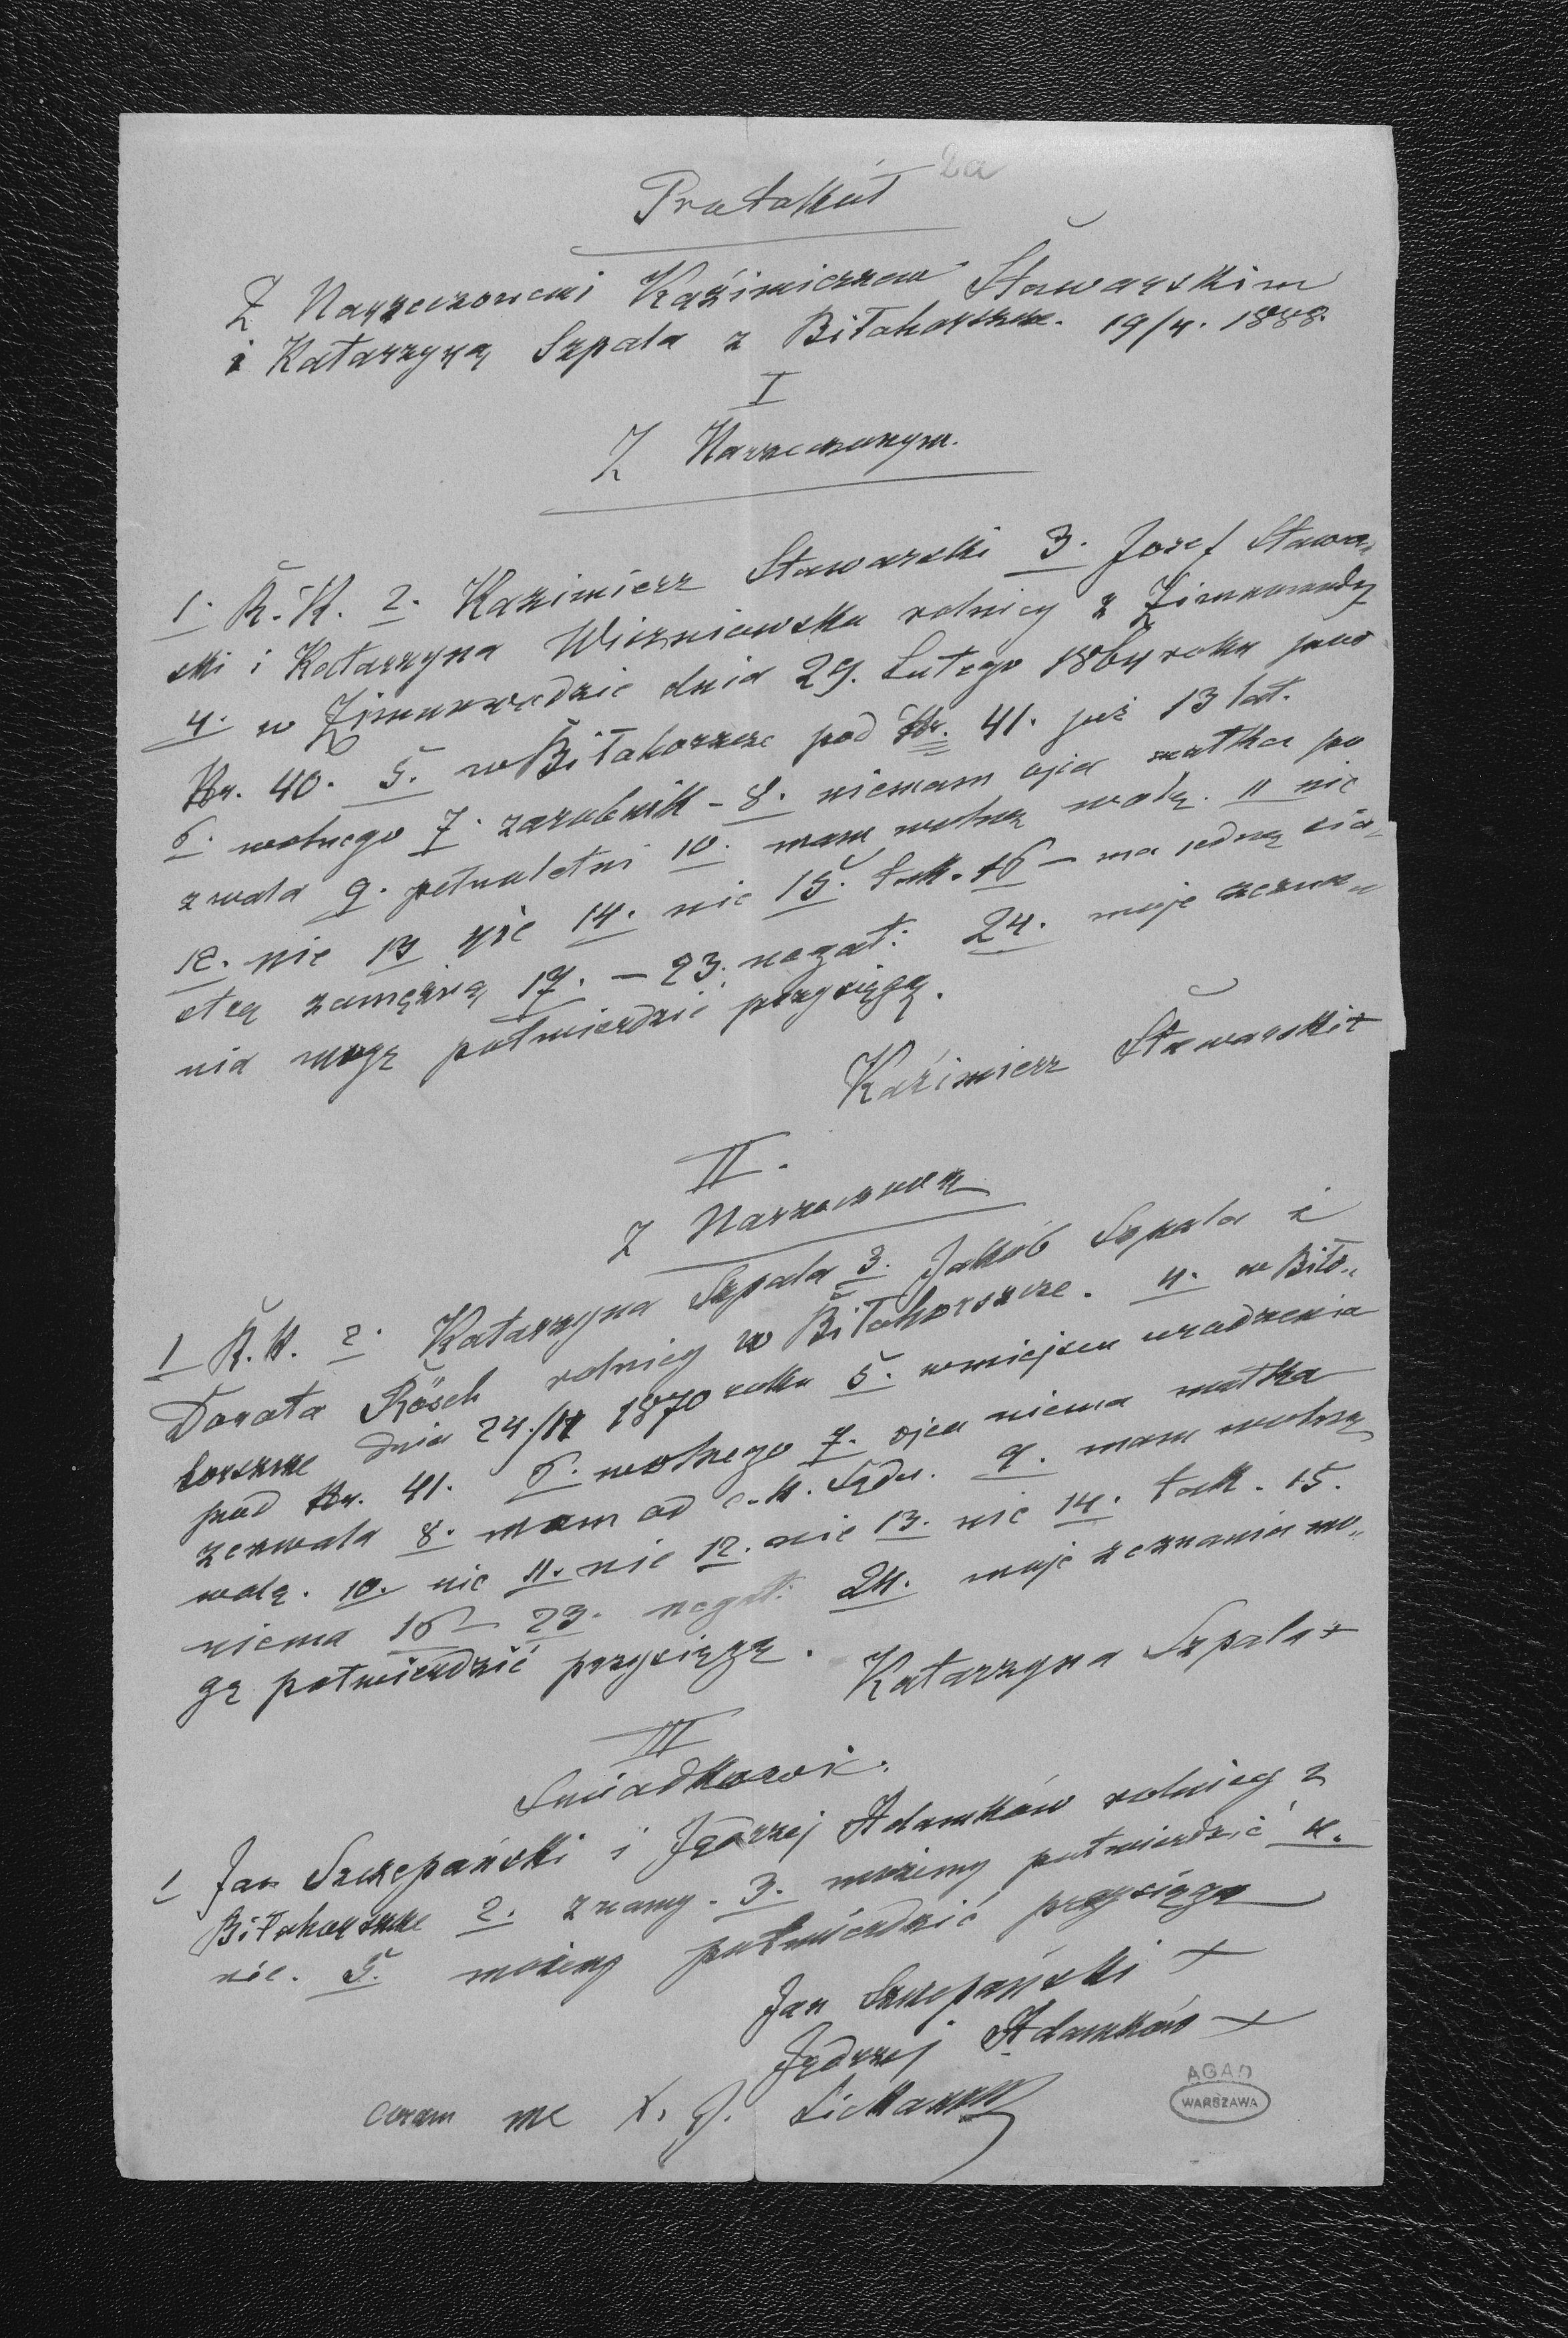 2a
Protokół
Z Narzeczonemi Kaźimierzem Stawarskim
i Katarzyną Szpala z Biłohorszcze. 19/4. 1888.
I
Z Narzeczonym.
1. R.K. 2. Kazimierz Stawarski 3. Józef Stawar„
ski i Katarzyna Wiszniowska rolnicy z Zimnowody
4. w Zimnowodzie dnia 29. Lutego 1864 roku pod
Nr. 40. 5. w Biłohorszcze pod Nr. 41. już 13 lat.
6. wolnego 7. zarobnik - 8. niemam ojca matka po
zwala 9. pełnoletni 10. mam wolną wolę. 11 nic
12. nie 13 nie 14. nie 15. tak. 16 – ma jedną sio„
strę zamężną 17. – 23. negat: 24. moje zezna„
nia mogę potwierdzić przysięgą.
Kaźimierz Stawarski +
II.
Z Narzeczoną
1 R.K. 2. Katarzyna Szpala 3. Jakób Szpala i
Dorota Rösch rolnicy w Biłohorszcze. 4. w Biło„
horszcze dnia 24/11 1870 roku 5. w miejscu urodzenia
pod Nr. 41. 6. wolnego 7. ojca niema matka
zezwala 8. mam od c.k. Sądu. 9. mam wolną
wolę. 10. nic 11. nie 12. nie 13. nie 14. tak. 15.
niema 16 – 23. negat: 24. moje zeznania mo„
gę potwierdzić przysięgą. Katarzyna Szpala +
III
Swiadkowie.
1 Jan Szczepański i Jędrzej Adamków rolnicy z
Biłohorszcze 2. znamy. 3. możemy potwierdzić 4.
nie. 5. możemy potwierdzić przysięgą
Jan Szczepański +
Jędrzej Adamków +
coram me X. J.
AGAD
WARSZAWA